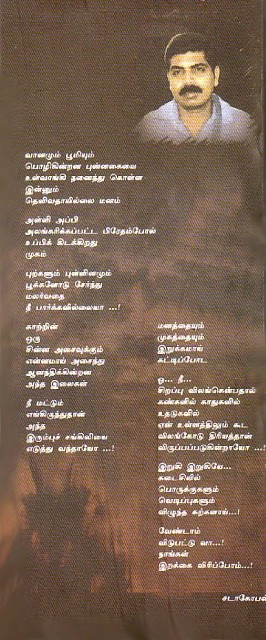 வானமும் பூமியும்
பொழிகின்றன புன்னகையை
உள்வாங்கி நனைந்து கொள்ள
இன்னும்
தெளிவதாயில்லை மனம்
அள்ளி அப்பி
அலங்கரிக்கப்பட்ட பிரேதம்போல்
உப்பிக் கிடக்கிறது
முகம்
புற்களும் புள்ளினமும்
பூக்களோடு சேர்ந்து
மலர்வதை
நீ பார்க்கவில்லையா ...!
காற்றின்
ஒரு
சின்ன அசைவுக்கும்
என்னமாய் அசைந்து
ஆனந்திக்கின்றன
அந்த இலைகள்
நீ மட்டும்
எங்கிருந்துதான்
அந்த
இரும்புச் சங்கிலியை
எடுத்து வந்தாயோ ...!
மனத்தையும்
முகத்தையும்
இறுக்கமாய்
கட்டிப்போட
ஓ... நீ...
சிறப்பு விலங்கென்பதால்
கண்களில் காதுகளில்
உதடுகளில்
ஏன் உள்ளத்திலும் கூட
விலங்கோடு திரிவத்தான்
விருப்பப்படுகின்றாயோ ...!
இறுகி இறுகியே...
கடைசியில்
பொருக்குகளும்
வெடிப்புகளும்
விழுந்த கற்களாய்...!
வேண்டாம்
விடுபட்டு வா...!
நாங்கள்
இறக்கை விரிப்போம்...!
சடாகோபன்